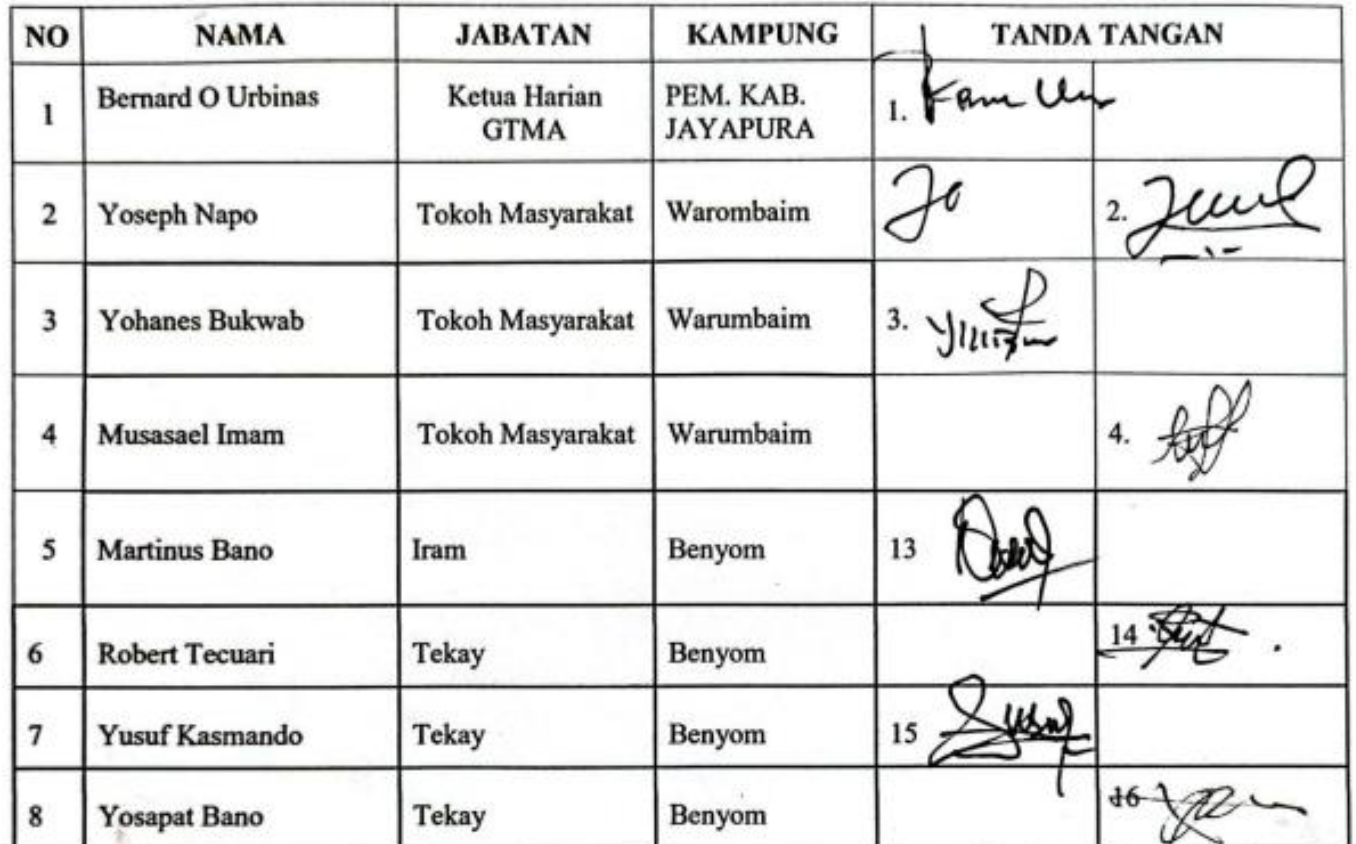 NO NAMA JABATAN KAMPUNG TANDA TANGAN
1 Bernard O Urbinas Ketua Harian GTMA PEM. KAB. JAYAPURA 1.
2 Yoseph Napo Tokoh Masyarakat Warombaim 2.
3 Yohanes Bukwab Tokoh Masyarakat Warumbaim 3.
4 Musasael Imam Tokoh Masyarakat Warumbaim 4.
5 Martinus Bano Iram Benyom 13
6 Robert Tecuari Tekay Benyom 14
7 Yusuf Kasmando Tekay Benyom 15
8 Yosapat Bano Tekay Benyom 16